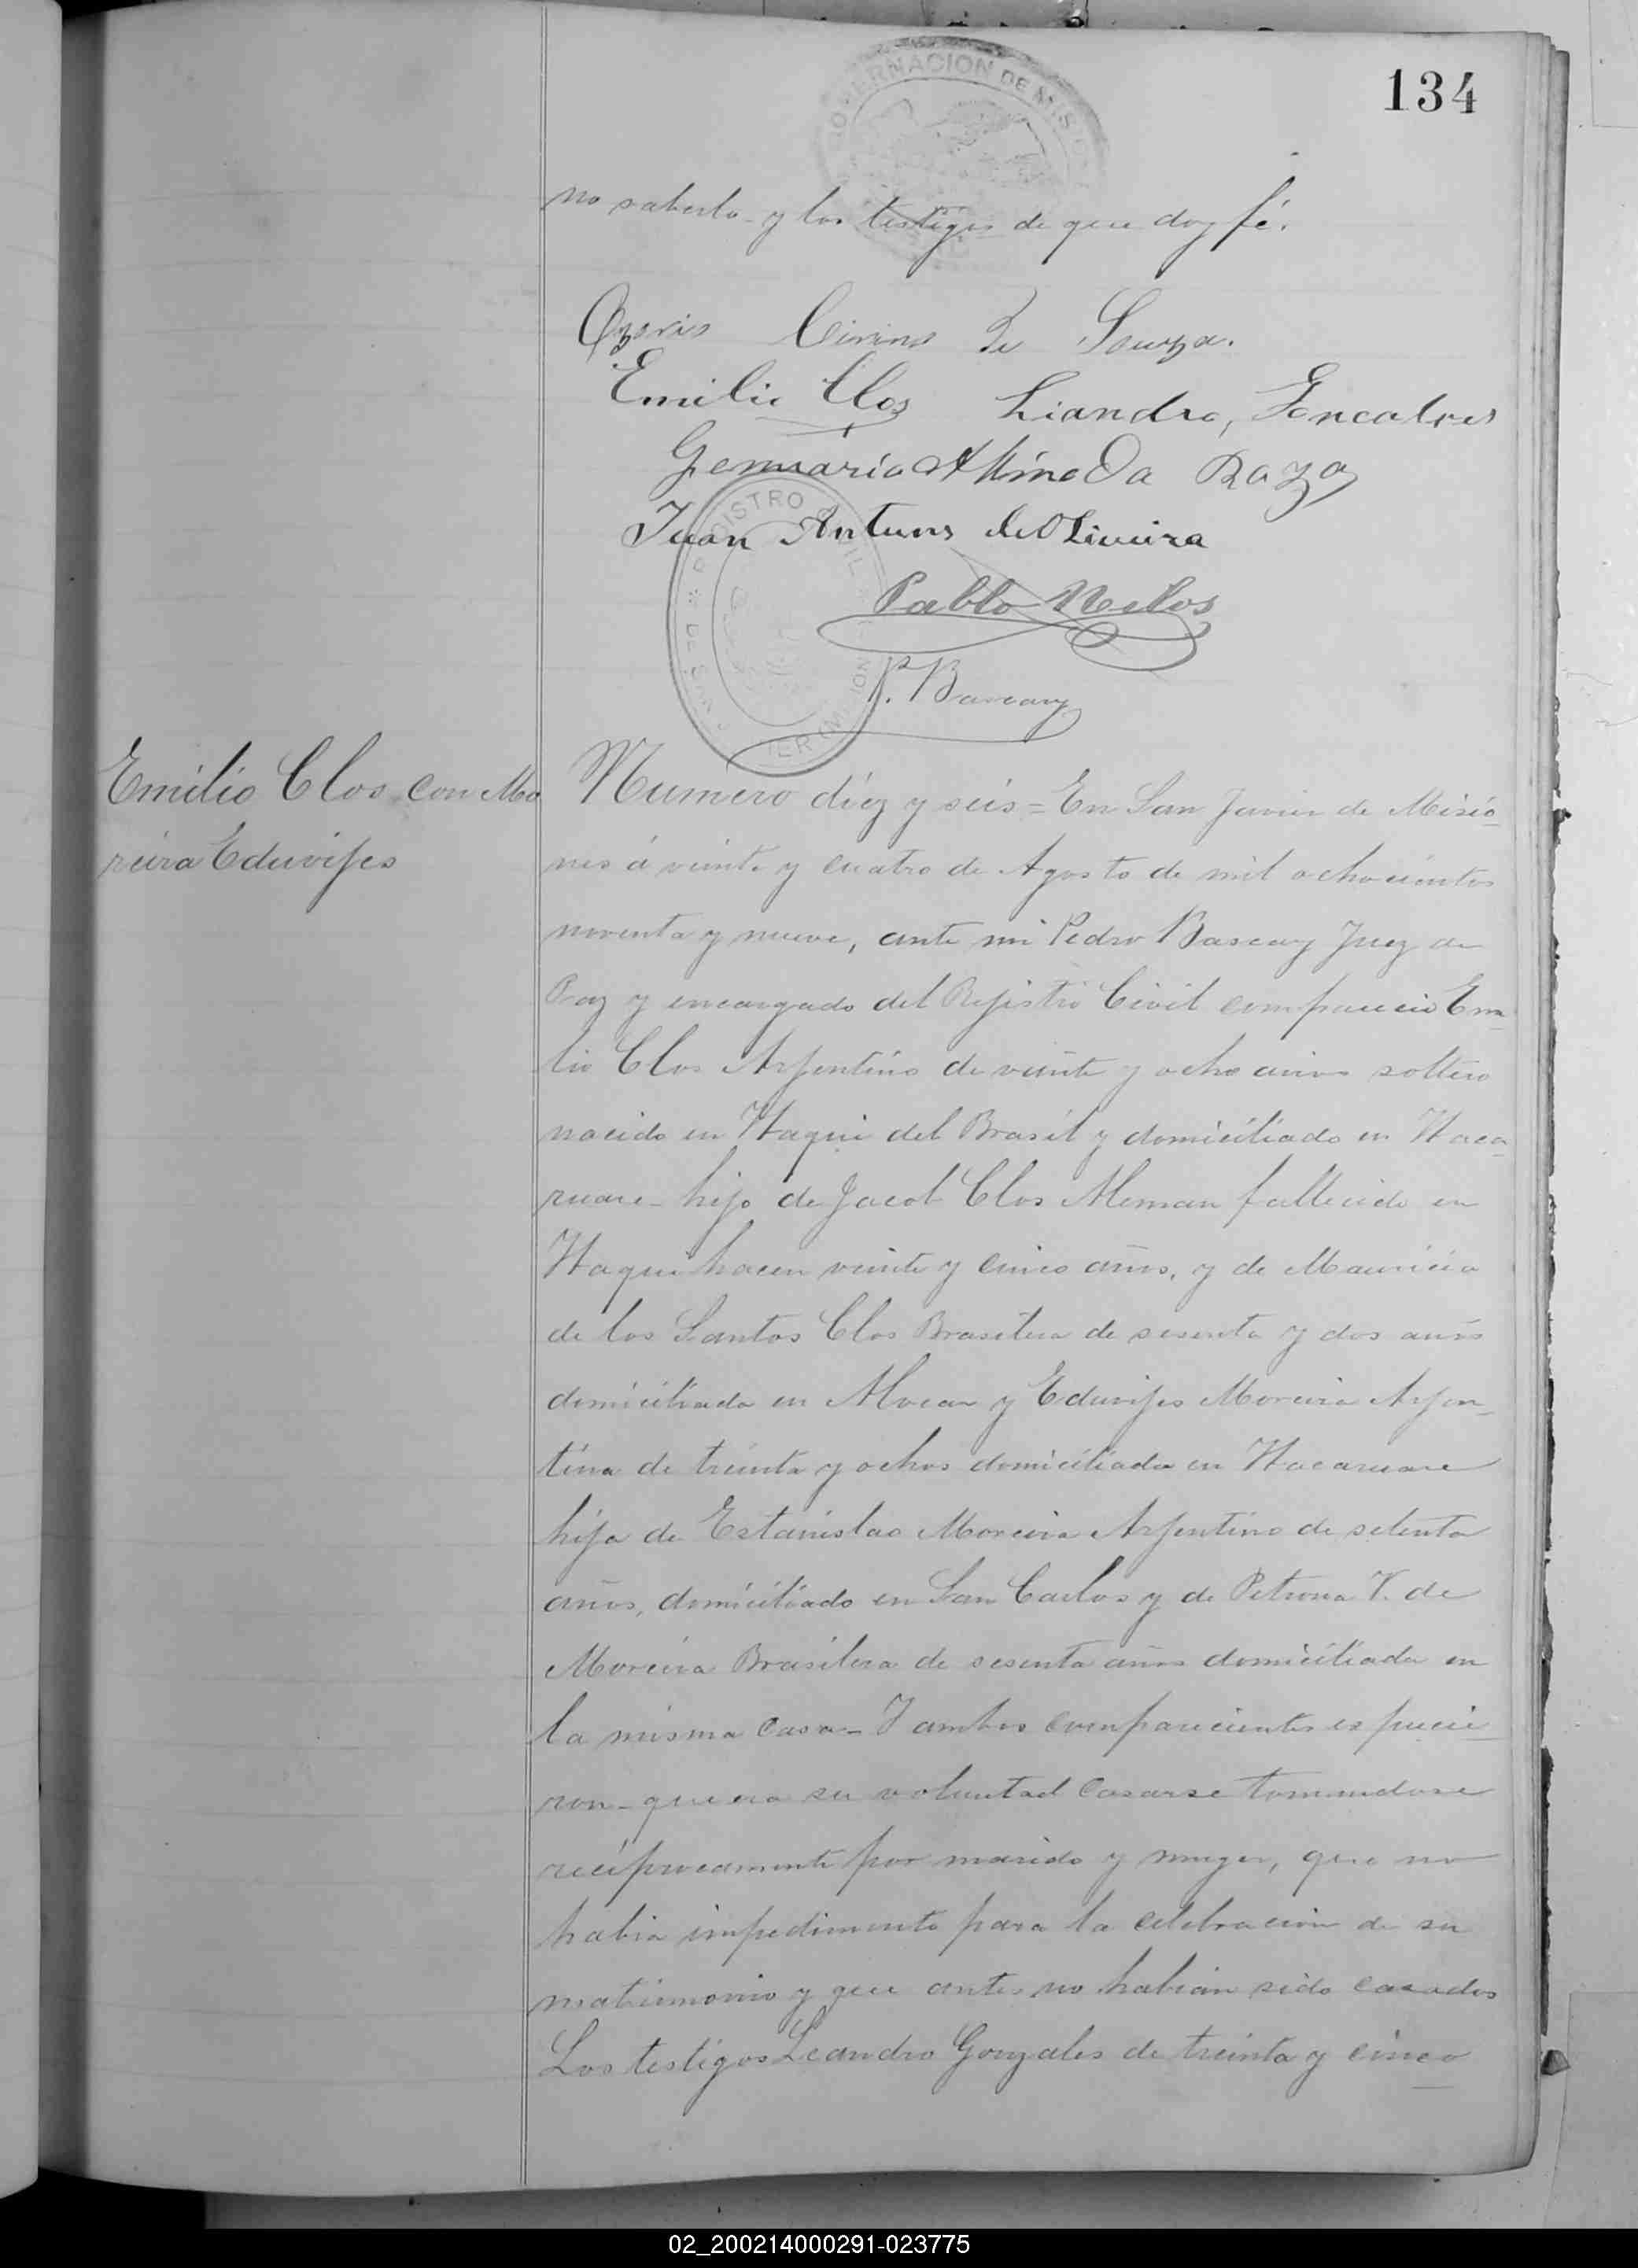 134
GOBERNACION DE MISIONES
no saberlo y los testigos de que doy fé.
de Souza.
Emilio Clos Liandro, Goncalves
Genuario Almeda Roza
Juan Antuns de Oliveira
Pablo
P. Bascary
REGISTRO CIVIL
Emilio Clos con Mo
reira Eduvijes
Numero diez y seis = En San Javier de Misio
nes á veinte y cuatro de Agosto de mil ochocientos
noventa y nueve, ante mi Pedro Bascary Juez de
Paz y encargado del Rejistro Civil comparecio Em
lio Clos Arjentino de veinte y ocho años soltero
nacido en Itaqui del Brasil y domiciliado en Itaca
ruare - hijo de Jacob Clos Aleman fallecido en
Itaqui hacen veinte y cinco años, y de Mauricia
de los Santos Clos Brasilera de sesenta y dos años
domiciliada en Alvear y Eduvijes Moreira Arjen
tina de treinta y ochos domiciliada en Itacaruare
hija de Estanislao Moreira Arjentino de setenta
años, domiciliado en San Carlos y de Petrona V. de
Moreira Brasilera de sesenta años domiciliada en
la misma casa - Y ambos comparecientes espucie
ron - que era su voluntad casarse tomandose
reciprocamente por marido y muger, que no
habia impedimento para la celebracion de su
matrimonio y que antes no habian sido casados
Los testigos Leandro Gonzales de treinta y cinco
02_200214000291-023775